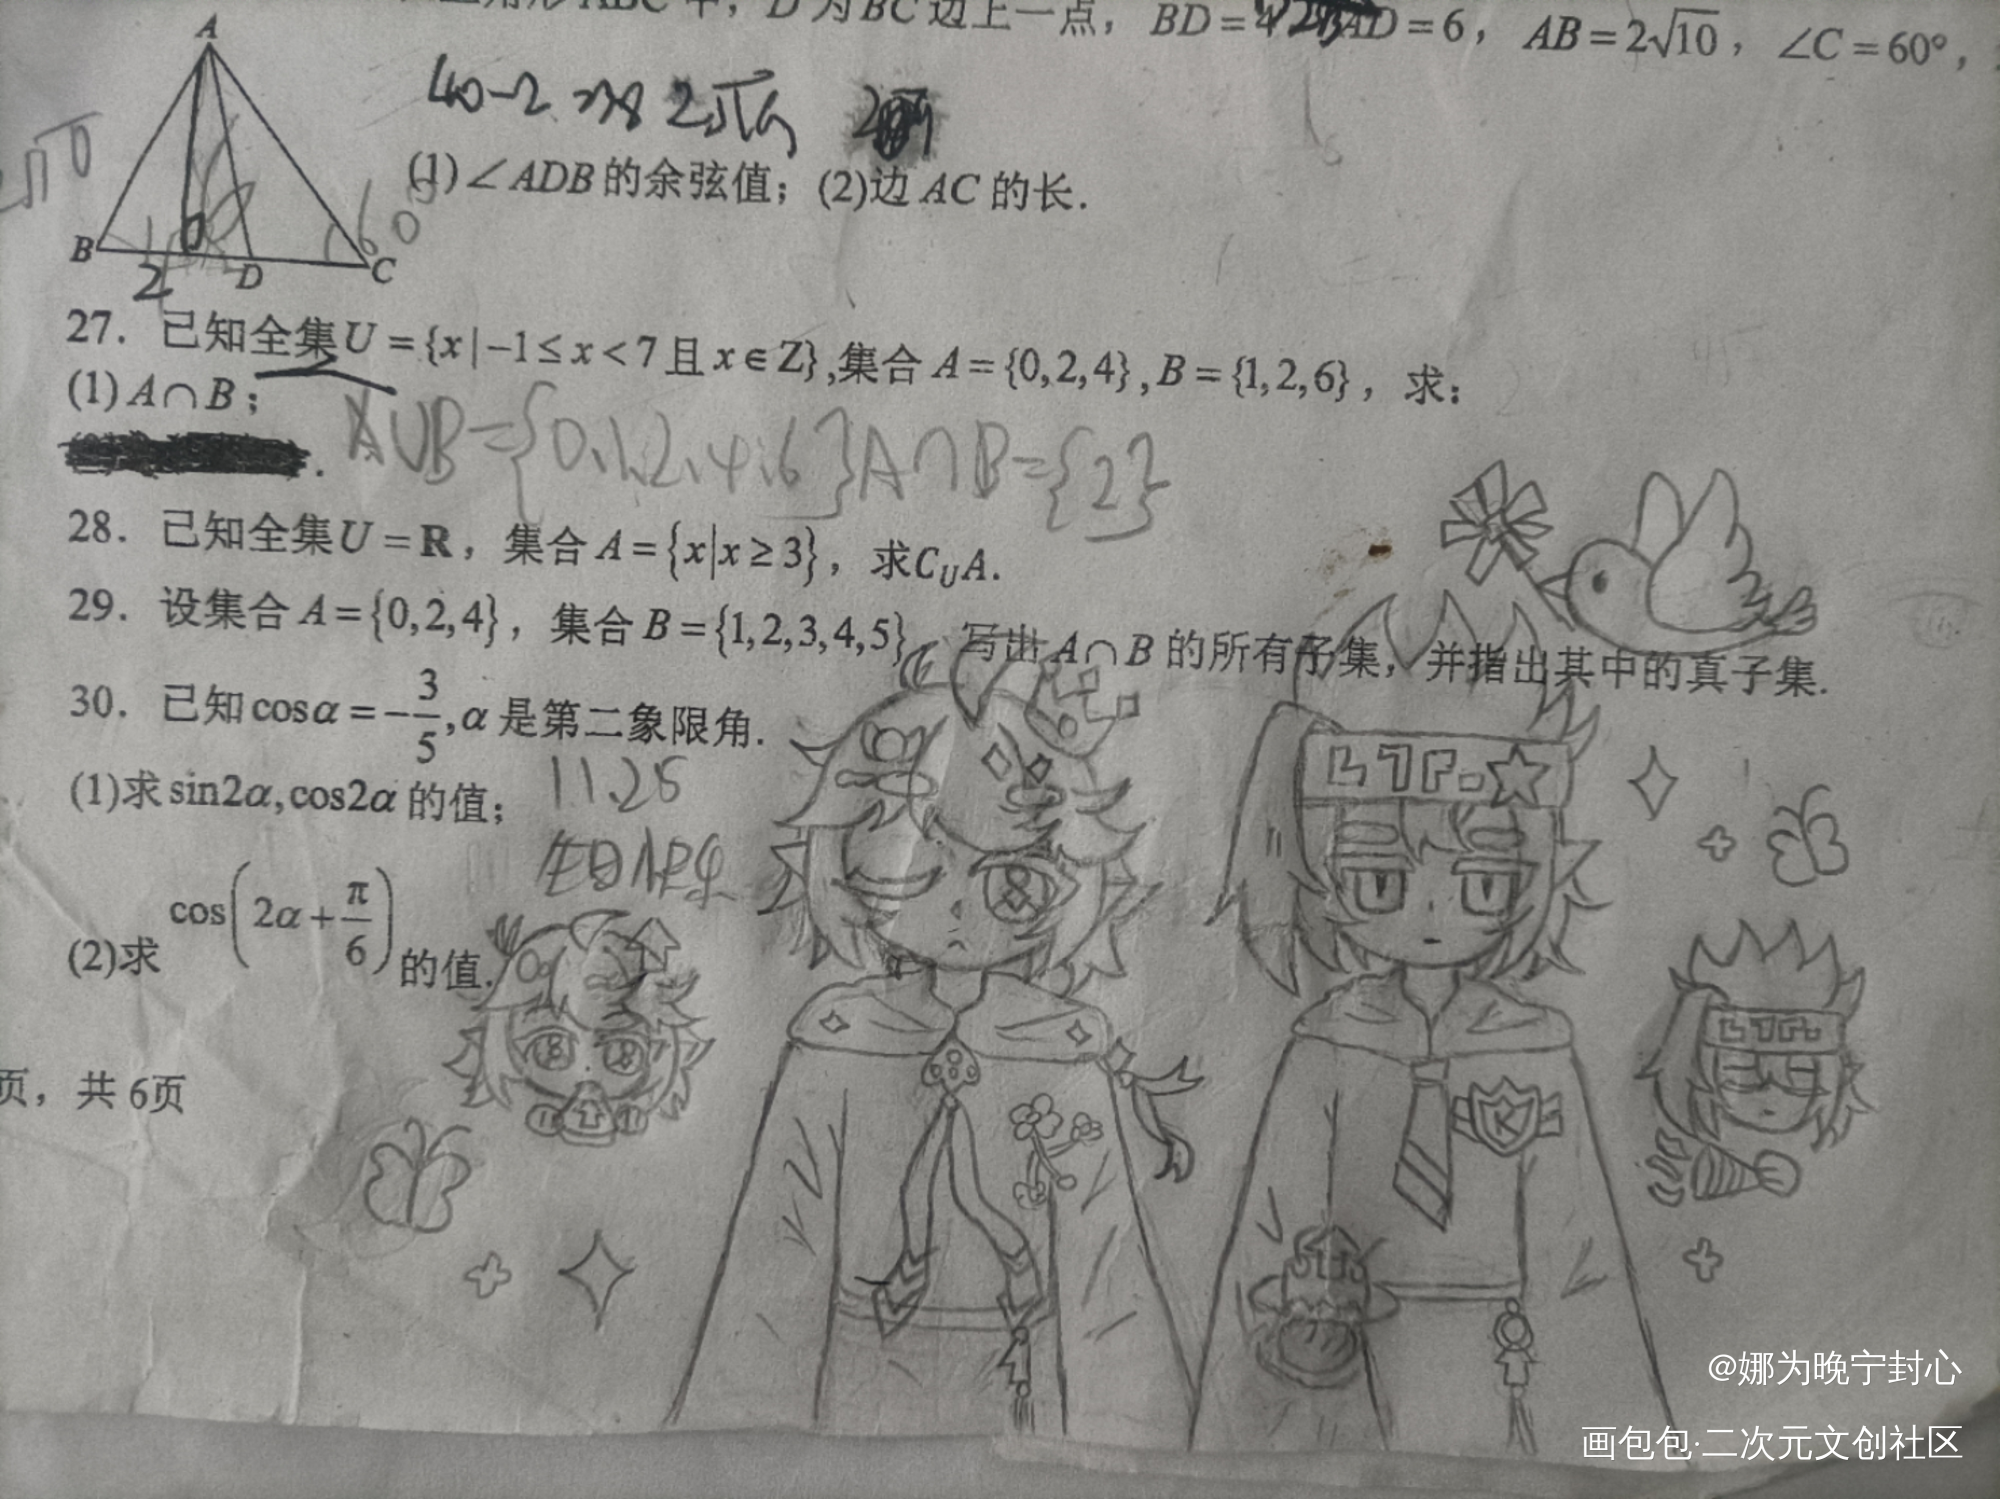 D为BC边上一点，BD=4 AD=6，AB=2√10，∠C=60°，
A
B
D
C
2
60°
(1)∠ADB的余弦值；(2)边AC的长.
27. 已知全集U={x|-1≤x<7且x∈Z},集合A={0,2,4},B={1,2,6}，求：
(1)A∩B；
A∪B={0,1,2,4,6}A∩B={2}
28. 已知全集U=R，集合A={x|x≥3}，求C_UA.
29. 设集合A={0,2,4}，集合B={1,2,3,4,5}，写出A∩B的所有子集，并指出其中的真子集.
30. 已知cosα=-3/5,α是第二象限角.
(1)求sin2α,cos2α的值；
11.25
(2)求cos(2α+π/6)的值.
K
页，共6页
@娜为晚宁封心
画包包·二次元文创社区